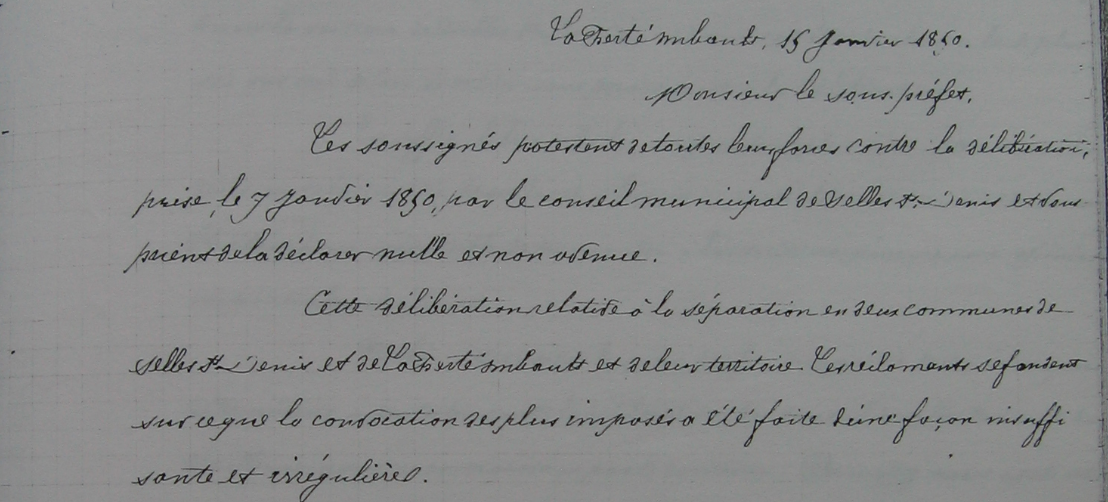 La Ferté Imbault, 15 Janvier 1850.
Monsieur le sous-préfet,
Les soussignés protestent de toutes leurs forces contre la délibération,
prise, le 7 Janvier 1850, par le conseil municipal de Selles St Denis et vous
prient de la déclarer nulle et non avenue.
Cette délibération relative à la séparation en deux communes de
Selles St Denis et de La Ferté Imbault et de leur territoire Les réclamants se fondent
sur ce que la convocation des plus imposés a été faite d'une façon insuffi
sante et irrégulière.